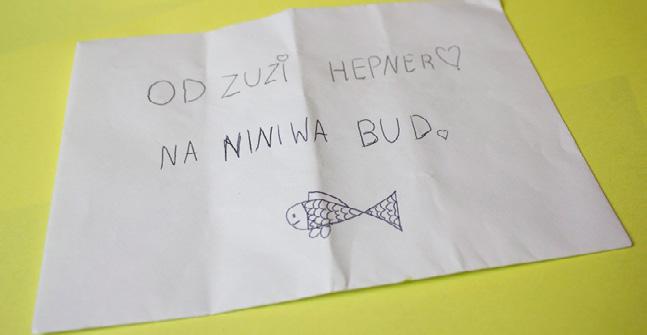 OD ZUZI HEPNER♡
NA NINIWA BUD♡